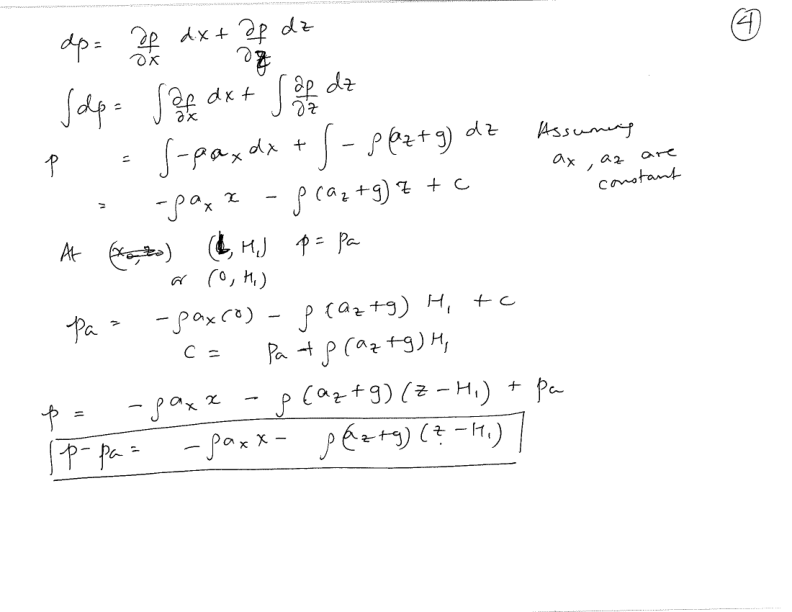 ④
dp = ∂p/∂x dx + ∂p/∂z dz
∫dp = ∫ ∂p/∂x dx + ∫ ∂p/∂z dz
p = ∫ -ρax dx + ∫ - ρ(az+g) dz Assuming
ax, az are
constant
= -ρax x - ρ(az+g) z + c
At (L, H1) p = pa
or (0, H1)
pa = -ρax(0) - ρ(az+g) H1 + c
c = pa + ρ(az+g) H1
p = -ρax x - ρ(az+g)(z-H1) + pa
p-pa = -ρax x - ρ(az+g)(z-H1)